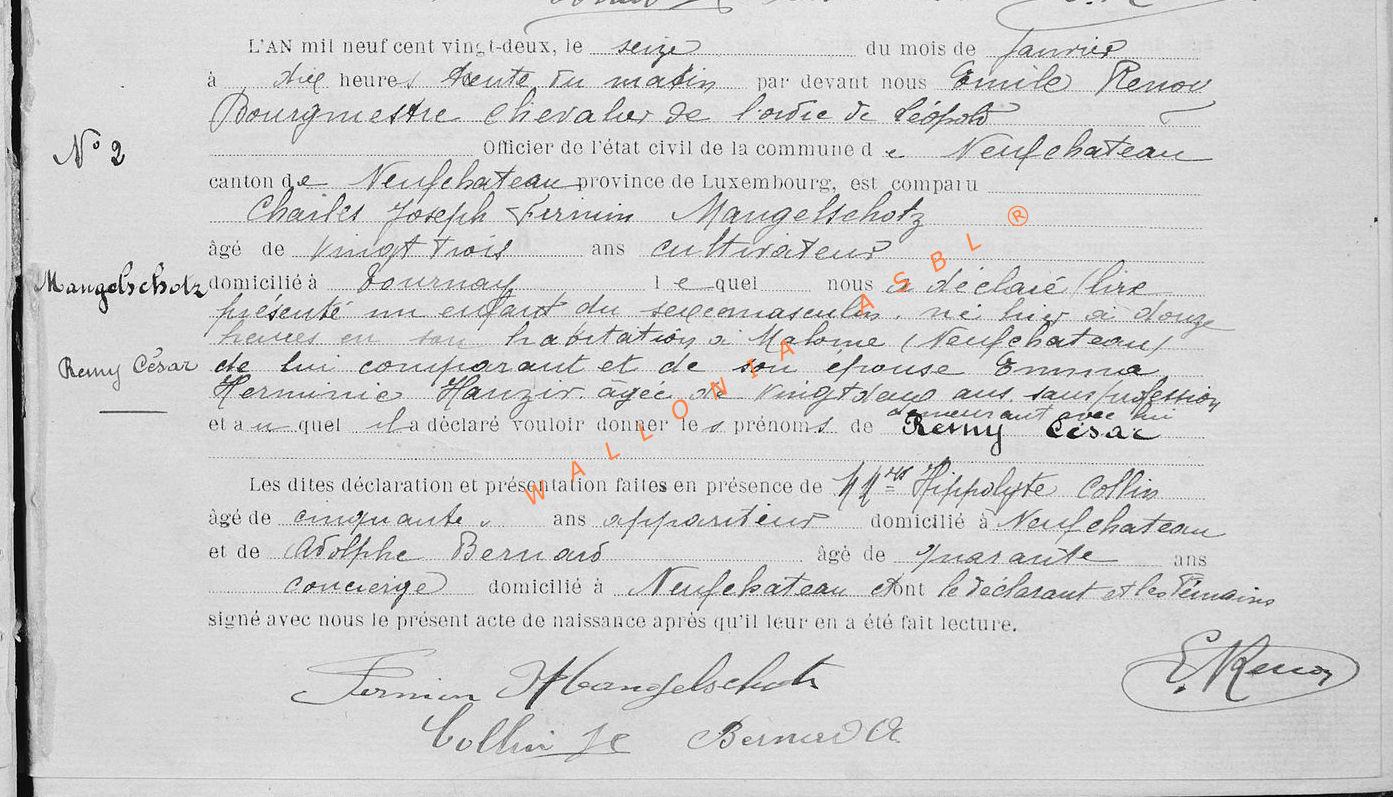 L'AN mil neuf cent vingt-deux, le seize du mois de Janvier
à dix heures trente du matin par devant nous Emile Renoy
Bourgmestre Chevalier de l'ordre de Léopold
N° 2
Officier de l'état civil de la commune de Neufchateau
canton de Neufchateau province de Luxembourg, est comparu
Charles Joseph Firmin Mangelschotz
âgé de vingt trois ans cultivateur
Mangelschotz
domicilié à Tournay lequel nous a déclaré (lire
présenté un enfant du sexe masculin, né hier à douze
heures en son habitation à Malome (Neufchateau)
Remy César
de lui comparant et de son épouse Emma
Herminie Hanzir âgée de vingt deux ans sans profession
demeurant avec lui
et auquel il a déclaré vouloir donner les prénoms de Remy César
Les dites déclaration et présentation faites en présence de MMrs Hippolyte Collin
âgé de cinquante ans appariteur domicilié à Neufchateau
et de Adolphe Bernard âgé de quarante ans
concierge domicilié à Neufchateau et ont le déclarant et les Témoins
signé avec nous le présent acte de naissance après qu'il leur en a été fait lecture.
Firmin Mangelschotz
E. Renoy
Collin Bernard A
WALLONIA ASBL ®